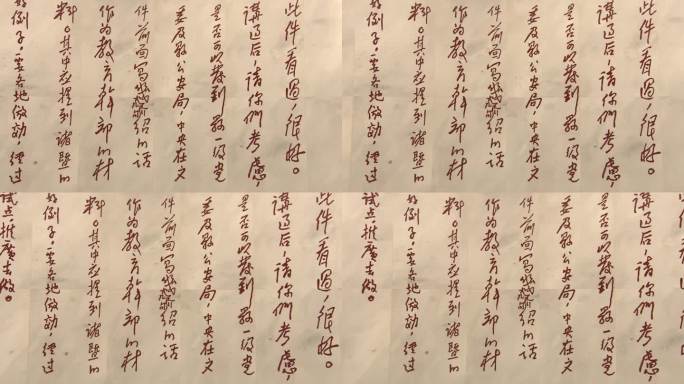 此件看過，很好。
講過后，請你們考慮，
是否可以發到縣一級党
委及縣公安局，中央在文
件前面寫幾句介紹的話
作为教育幹部的材
料。其中应提到諸暨的
好例子，要各地倣効，經过
此件看過，很好。
講過后，請你們考慮，
是否可以發到縣一級党
委及縣公安局，中央在文
件前面寫幾句介紹的話
作为教育幹部的材
料。其中应提到諸暨的
好例子，要各地倣効，經过
此件看過，很好。
講過后，請你們考慮，
是否可以發到縣一級党
委及縣公安局，中央在文
件前面寫幾句介紹的話
作为教育幹部的材
料。其中应提到諸暨的
好例子，要各地倣効，經过
試点，推廣去做。
此件看過，很好。
講過后，請你們考慮，
是否可以發到縣一級党
委及縣公安局，中央在文
件前面寫幾句介紹的話
作为教育幹部的材
料。其中应提到諸暨的
好例子，要各地倣効，經过
試点，推廣去做。